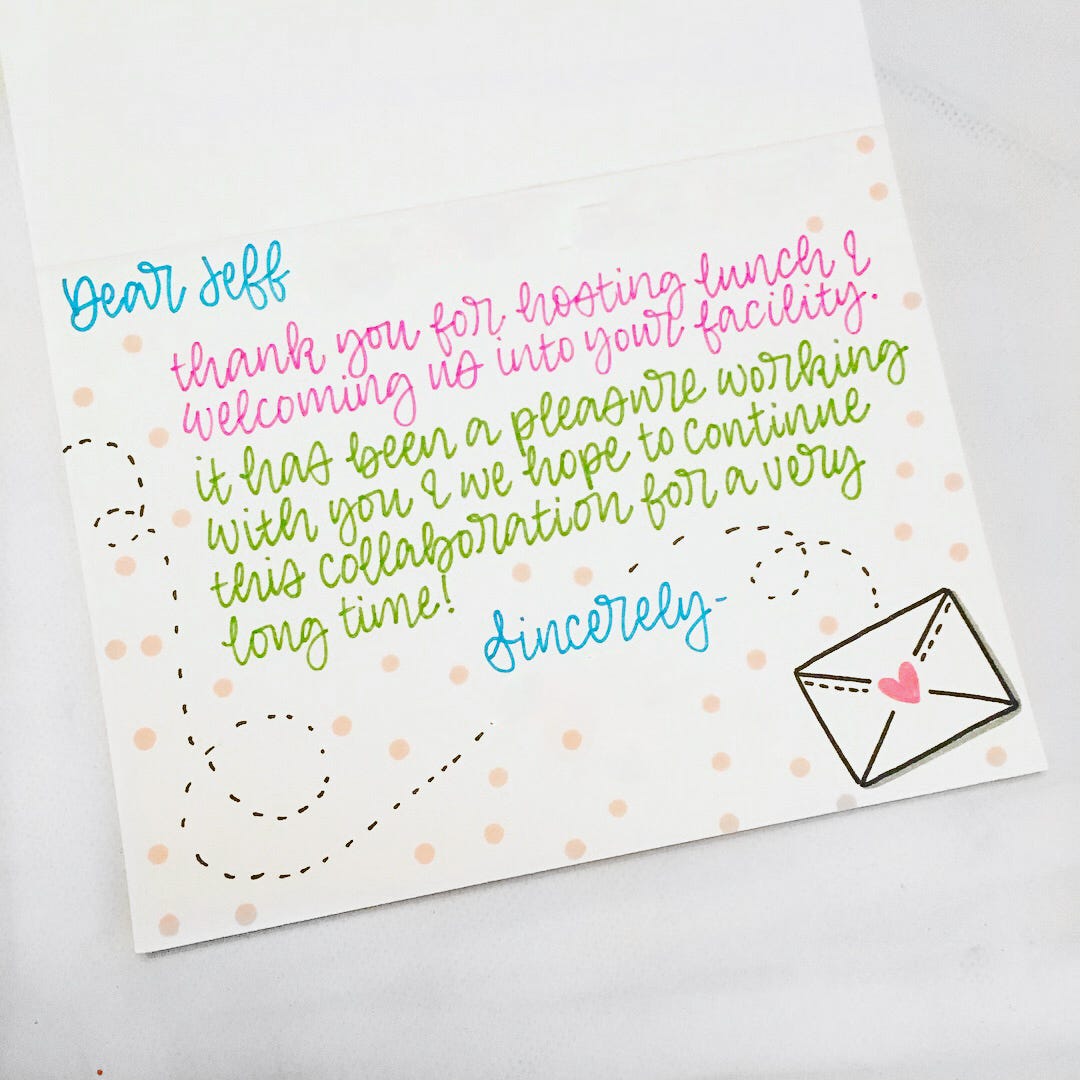 Dear Jeff
thank you for hosting lunch &
welcoming us into your facility.
it has been a pleasure working
with you & we hope to continue
this collaboration for a very
long time!
Sincerely-